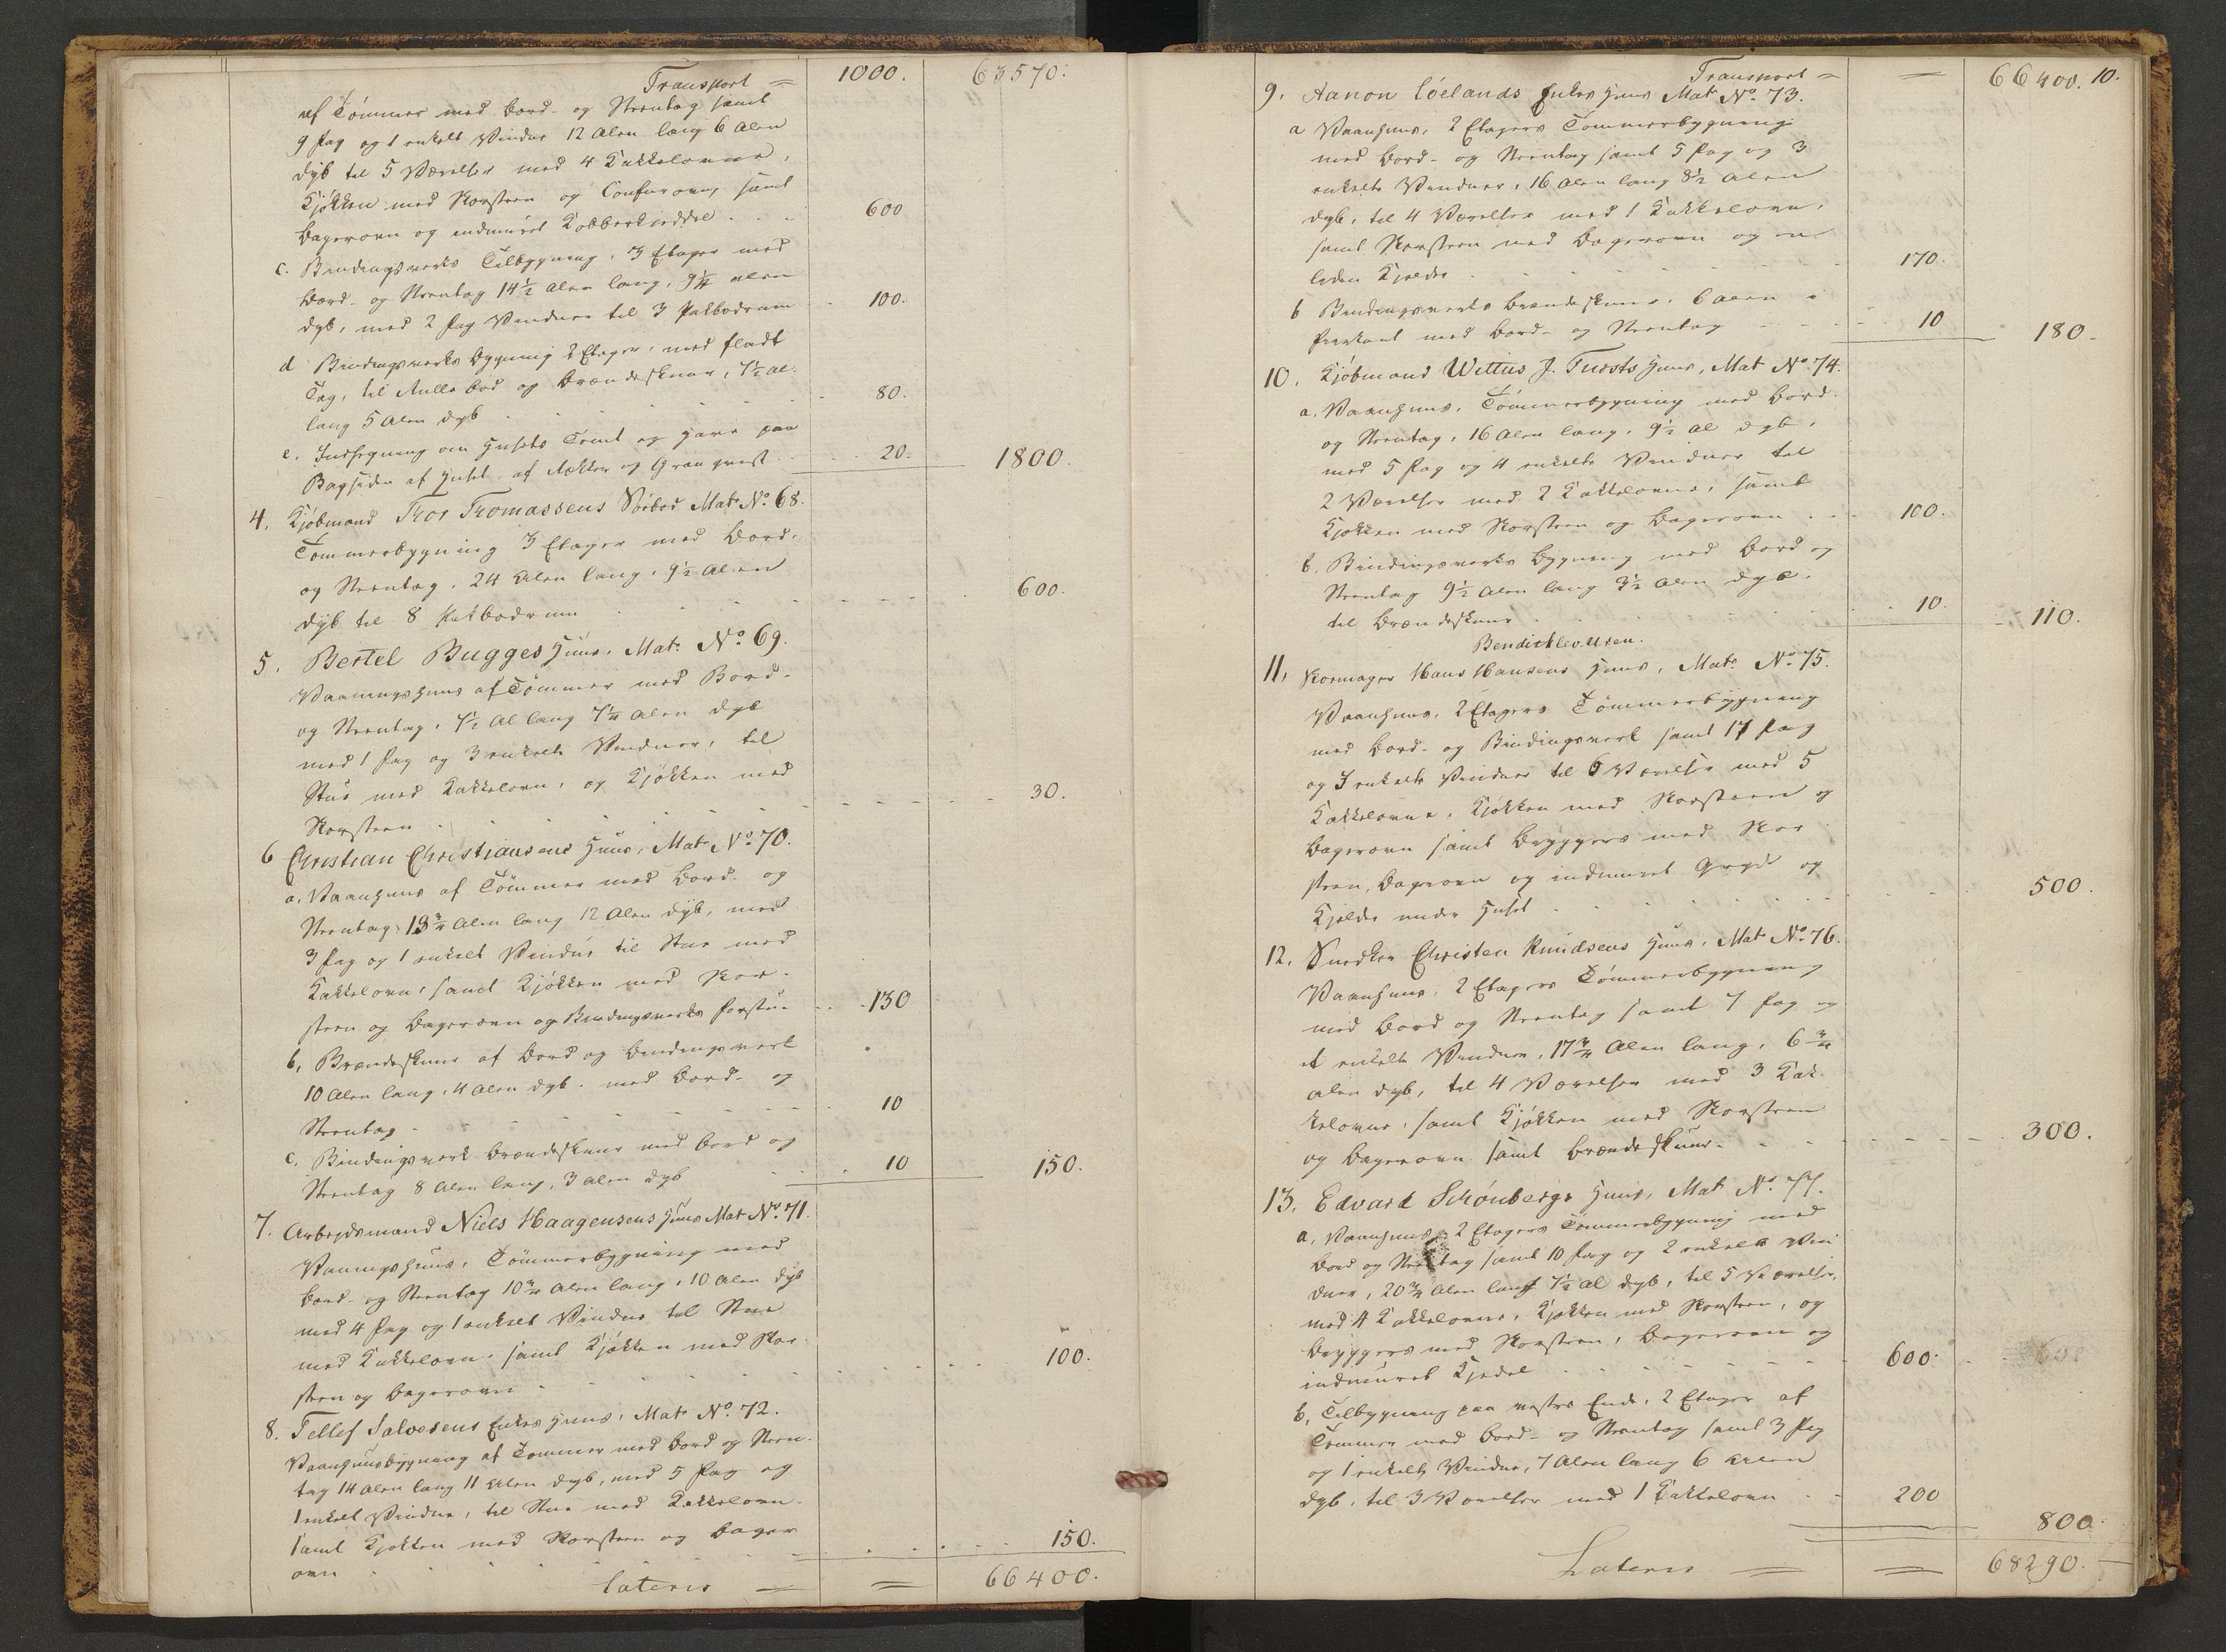 Transport = 1000. 63570.
af Tømmer med Bord- og Steentag samt
9 Fag og 1 enkelt Vindue 12 Alen lang 6 Alen
dyb til 5 Værelser med 4 Kakkelovne,
Kjøkken med Skorsteen og Comfurovn, samt
Bagerovn og indmuret Kobberkjeddel . . . 600
c. Bindingsverks Tilbygning, 3 Etager med
Bord- og Steentag 14½ Alen lang, 9¼ Alen
dyb, med 2 Fag Vinduer til 3 Pakbodrum . 100.
d Bindingsverks Bygning 2 Etager, med fladt
Tag, til Rullebod og Brændeskuur, 7½ Al.
lang 5 Alen dyb . . . 80.
e. Indhegning om Husets Tomt og Have paa
Bagsiden af Huset, af Rækker og 20. 1800.
4. Kjøbmand Thor Thomassens Søebod Mat: No. 68.
Tømmerbygning 3 Etager med Bord-
og Steentag, 24 Alen lang, 9½ Alen
dyb til 8 Pakbodrum . . . 600.
5. Bertel Bugges Huus, Mat: No. 69.
Vaaningshuus af Tømmer med Bord-
og Steentag, 7½ Al lang 7¼ Alen dyb
med 1 Fag og 3 enkelte Vinduer, til
Stue med Kakkelovn, og Kjøkken med
Skorsteen . . . 30.
6 Christian Christiansens Huus, Mat: No. 70.
a. Vaanhuus af Tømmer med Bord- og
Steentag, 13¾ Alen lang 12 Alen dyb, med
3 Fag og 1 enkelt Vindue til Stue med
Kakkelovn, samt Kjøkken med Skor-
steen og Bagerovn og Bindingsverks Forstue . . 130
b, Brændeskuur af Bord og Bindingsverk
10 Alen lang, 4 Alen dyb, med Bord- og
Steentag . . . 10
c. Bindingsverk Brændeskuur med Bord og
Steentag 8 Alen lang, 3 Alen dyb . . 10 150.
7. Arbeidsmand Niels Haagensens Huus Mat No. 71.
Vaaningshuus, Tømmerbygning med
Bord- og Steentag 10¾ Alen lang, 10 Alen dyb
med 4 Fag og 1 enkelt Vindue til Stue
med Kakkelovn, samt Kjøkken med Skor-
steen og Bagerovn . . . 100.
8. Tellef Salvesens Enkes Huus, Mat: No. 72.
Vaanhuusbygning af Tømmer med Bord og Steen-
tag 14 Alen lang 11 Alen dyb, med 5 Fag og
1 enkelt Vindue, til Stue med Kakkelovn,
samt Kjøkken med Skorsteen og Bager
ovn . . . 150.
Lateris = = 66400.
Transport = = 66400. 10.
9. Aanon Løelands Enkes Huus Mat: No. 73.
a Vaanhuus, 2 Etagers Tømmerbygning
med Bord- og Steentag samt 5 Fag og 3
enkelte Vinduer, 16 Alen lang 8½ Alen
dyb, til 4 Værelser med 1 Kakkelovn,
samt Skorsteen med Bagerovn og en
liden Kjelder . . . 170.
b Bindingsverks Brændeskuur, 6 Alen i
Fiirkant med Bord- og Steentag . . . 10 180.
10. Kjøbmand Wittus J. Thosts Huus, Mat No. 74.
a. Vaanhuus, Tømmerbygning med Bord-
og Steentag, 16 Alen lang, 9½ Al dyb,
med 5 Fag og 4 enkelte Vinduer til
2 Værelser med 2 Kakkelovne, samt
Kjøkken med Skorsteen og Bagerovn . . . 100.
b. Bindingsverks Bygning med Bord og
Steentag 9½ Alen lang 3½ Alen dyb,
til Brændeskuur . . . 10. 110.
Bendichlevetsen.
11, Skomager Hans Hansens Huus, Mat: No. 75.
Vaanhuus, 2 Etagers Tømmerbygning
med Bord- og Bindingsverk samt 17 Fag
og 3 enkelte Vinduer til 6 Værelser med 5
Kakkelovne, Kjøkken med Skorsteen og
Bagerovn samt Bryggers med Skor
steen, Bagerovn og indmuret Gryde og
Kjelder under Huset . . . 500.
12. Snedker Christen Knudsens Huus, Mat No. 76.
Vaanhuus, 2 Etagers Tømmerbygning
med Bord og Steentag samt 7 Fag og
et enkelt Vindue, 17¾ Alen lang, 6¾
Alen dyb, til 4 Værelser med 3 Kak-
kelovne, samt Kjøkken med Skorsteen
og Bagerovn samt Brændeskuur . . . 300.
13. Edvard Schønbergs Huus, Mat No. 77.
a, Vaanhuus, 2 Etagers Tømmerbygning med
Bord og Steentag samt 10 Fag og 2 enkelte Vin
duer, 20¾ Alen lang 7½ Al dyb, til 5 Værelser,
med 4 Kakkelovne, Kjøkken med Skorsteen, og
Bryggers med Skorsteen, Bagerovn og
indmuret Kjedel . . . 600.
b, Tilbygning paa vestre Ende, 2 Etager af
Tømmer med Bord- og Steentag samt 3 Fag
og 1 enkelt Vindue, 7 Alen lang 6 Alen
dyb, til 3 Værelser med 1 Kakkelovn . . 200
800.
Lateris = = 68290.